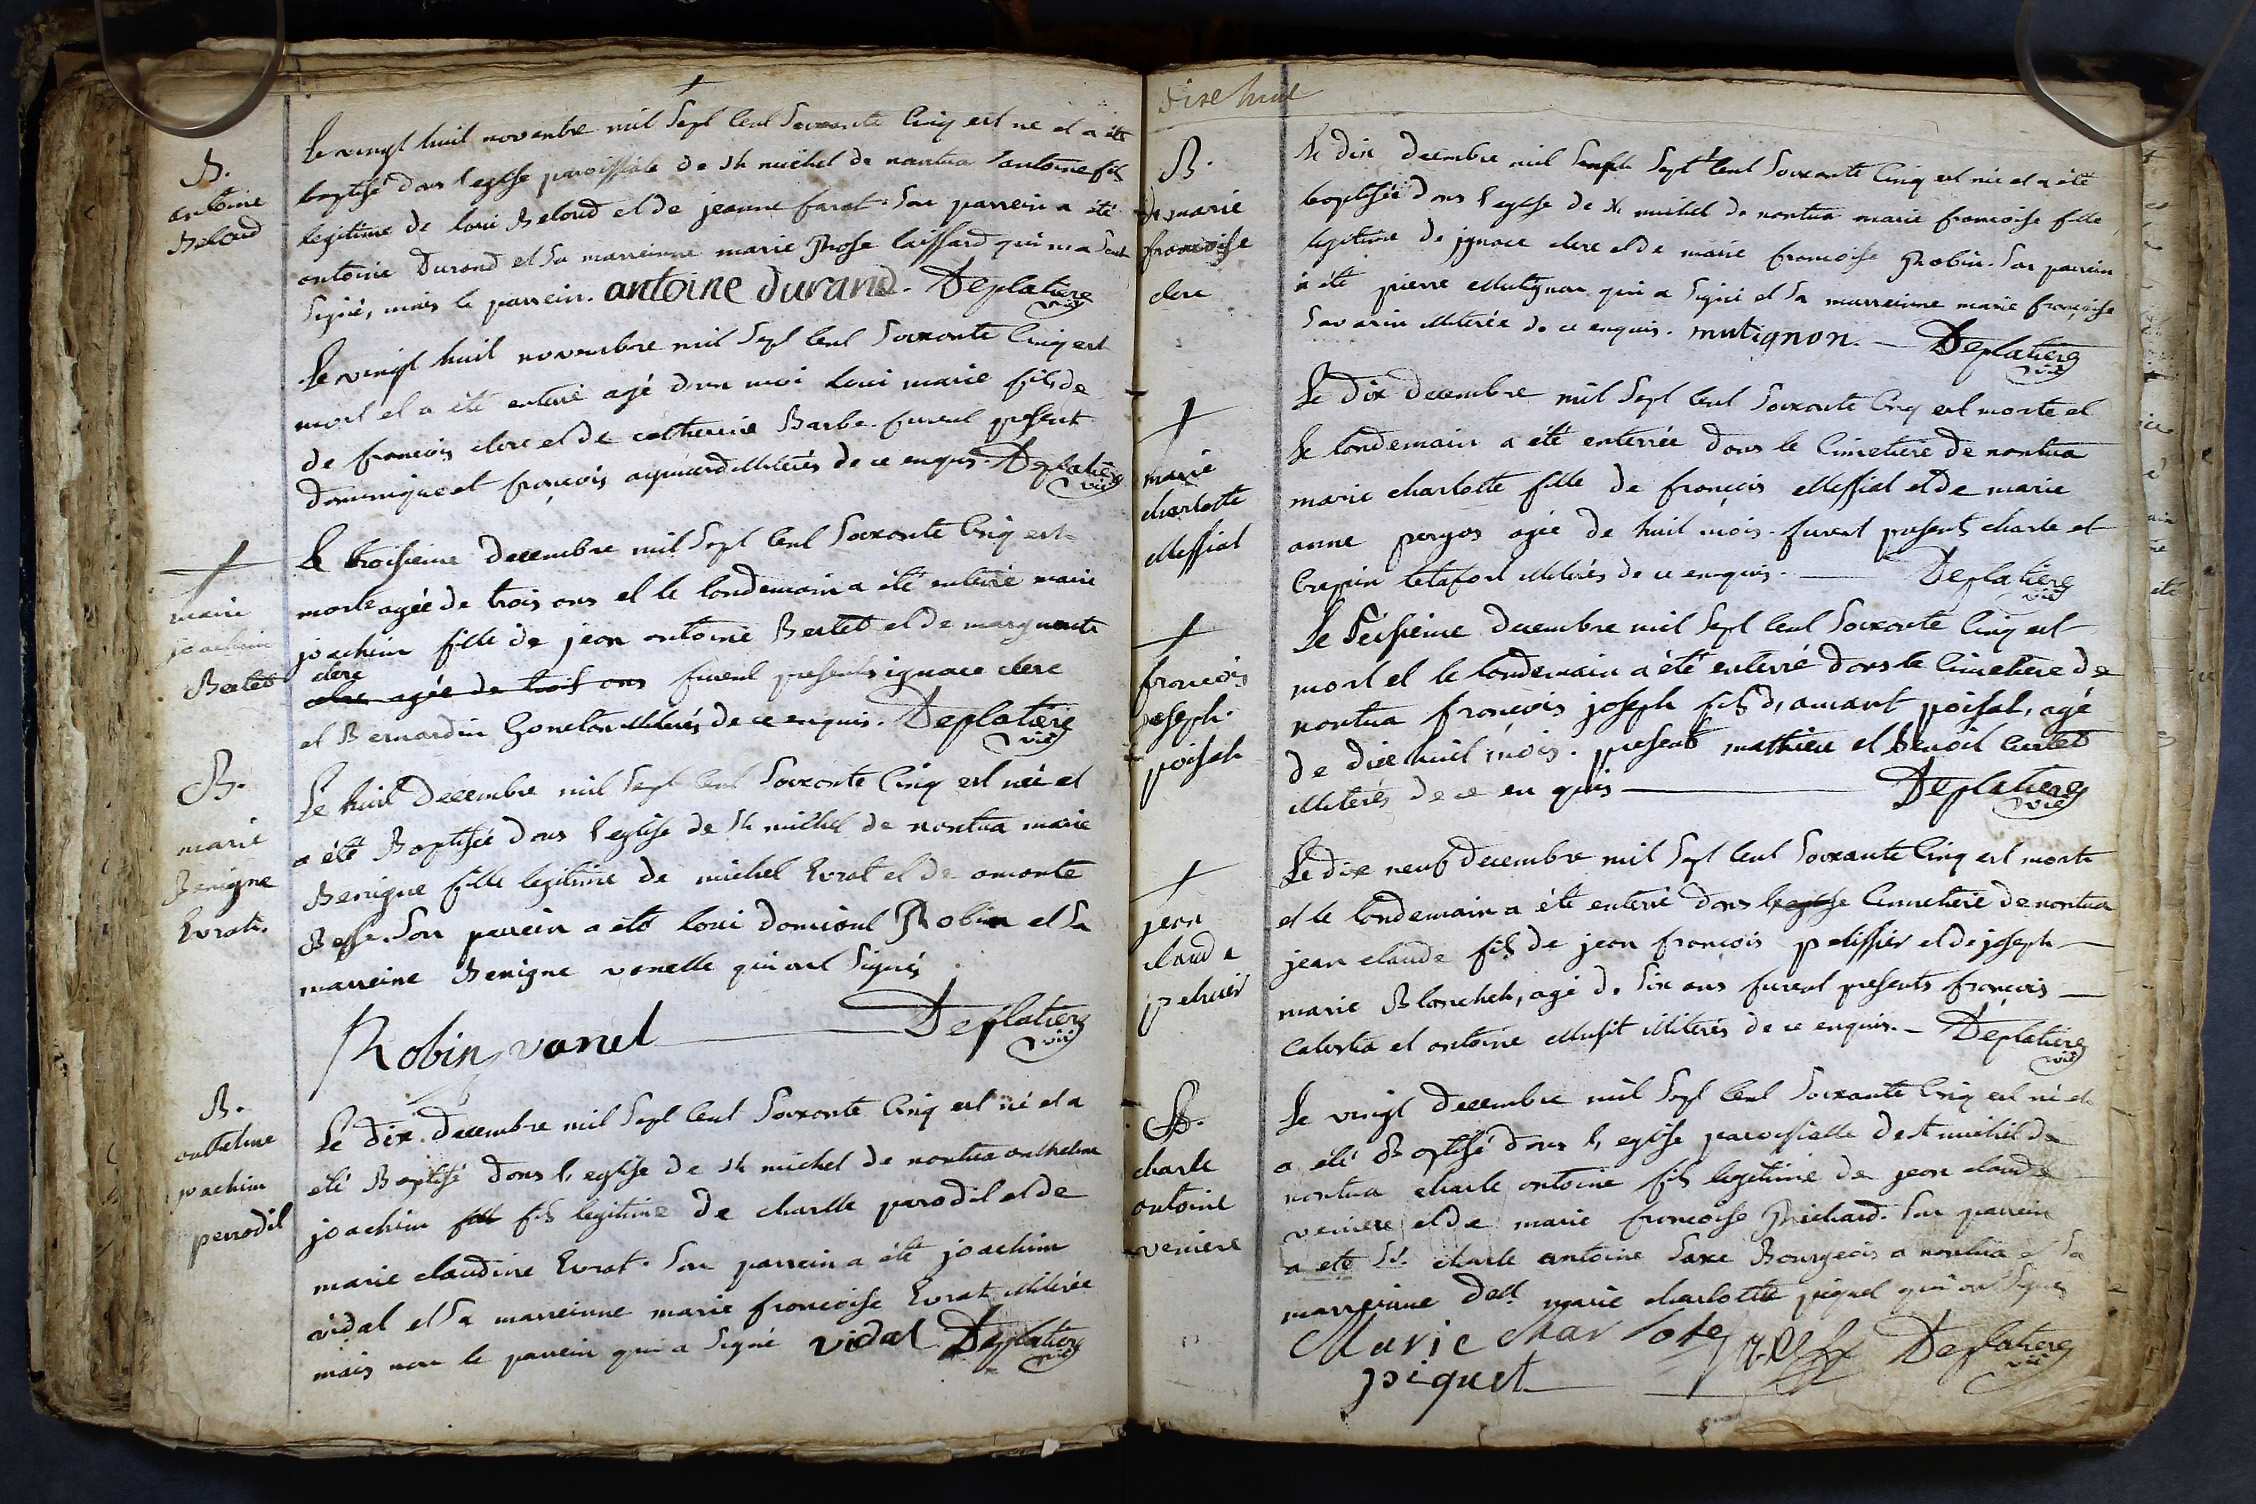 B.
antoine
Beloud
Le vingt huit novembre mil sept cent soixante cinq est ne et a été
baptisé dans l'eglise paroissiale de st michel de nantua antoine fils
legitime de loui Beloud et de jeanne farat. son parrein a été
antoine Durand et sa marreinne marie Rose laissard qui n'a
signé, mais le parrein. antoine durand. Deplatiere
vic
Le vingt huit novembre mil sept cent soixante cinq est
mort et a été enterré agé d'un moi loui marie fils de
de francois clerc et de catherine Barbe. furent présent
dominique et françois illiterés de ce enquis. Deplatiere
vic
†
marie
joachim
Bertet
Le troisieme decembre mil sept cent soixante cinq est
morte agée de trois ans et le landemain a été enterré marie
joachim fille de jean antoine Bertet et de marguerite
clerc
agée de trois ans furent presents ignace clerc
et Bernardin illiterés de ce enquis. Deplatiere
vic
B.
marie
Benigne
Evrat.
Le huit decembre mil sept cent soixante cinq est née et
a été Baptisée dans l'eglise de st michel de nantua marie
Benigne fille legitime de michel Evrat et de amante
Besse. son parrein a été loui domicent Robin et sa
marreine Benigne vanelle qui ont signés
Robin vanel Deplatiere
vic
B.
anthelme
joachim
perrodil
Le dix decembre mil sept cent soixante cinq est né et a
été Baptisé dans l'eglise de st michel de nantua anthelme
joachim fils legitime de charlle parodil et de
marie claudine Evrat. son parrein a été joachim
vidal et sa marreinne marie francoise Evrat illiterée
mais non le parrein qui a signé vidal Deplatiere
vic
Dixe huit
B.
marie
francoise
clerc
Le dix decembre mil sept cent soixante cinq est née et a été
baptisée dans l'eglise de st michel de nantua marie francoise fille
legitime de jgnace clerc et de marie francoise Robin. son parrein
a été pierre Mutignon qui a signé et sa marreinne marie françoise
Savarin illiterée de ce enquis. mutignon. Deplatiere
vic
†
marie
charlotte
Messiat
Le dix decembre mil sept cent soixante cinq est morte et
le landemain a été enterrée dans le cimetiere de nantua
marie charlotte fille de françois Messiat et de marie
anne pergos agée de huit mois. furent present charle et
Crepin tetafort illiterés de ce enquis. Deplatiere
vic
†
francois
joseph
poisat
Le seisieme decembre mil sept cent soixante cinq est
mort et le landemain a été enterré dans le cimetiere de
nantua françois joseph fils d'amant poisat, agé
de dixe huit mois. present mathieu et Benoit
illiterés de ce en quis Deplatiere
vic
†
jean
claude
pelissier
Le dixe neuf decembre mil sept cent soixante cinq est morte
et le landemain a été enterré dans l'eglise cimetiere de nantua
jean claude fils de jean françois pelissier et de joseph
marie Blanchet, agé de six ans furent presents françois
Calosta et antoine Musit illiterés de ce enquis. Deplatiere
vic
B.
charle
antoine
veniere
Le vingt decembre mil sept cent soixante cinq est né et
a été Baptisé dans l'eglise paroissialle de st michel de
nantua charle antoine fils legitime de jean claude
veniere et de marie francoise Richard. son parrein
a été Sr. charle antoine Saxe Bourgeois a nantua et sa
marreinne delle marie charlotte piquet qui ont signés
Marie charlote Deplatiere
piquet
vic